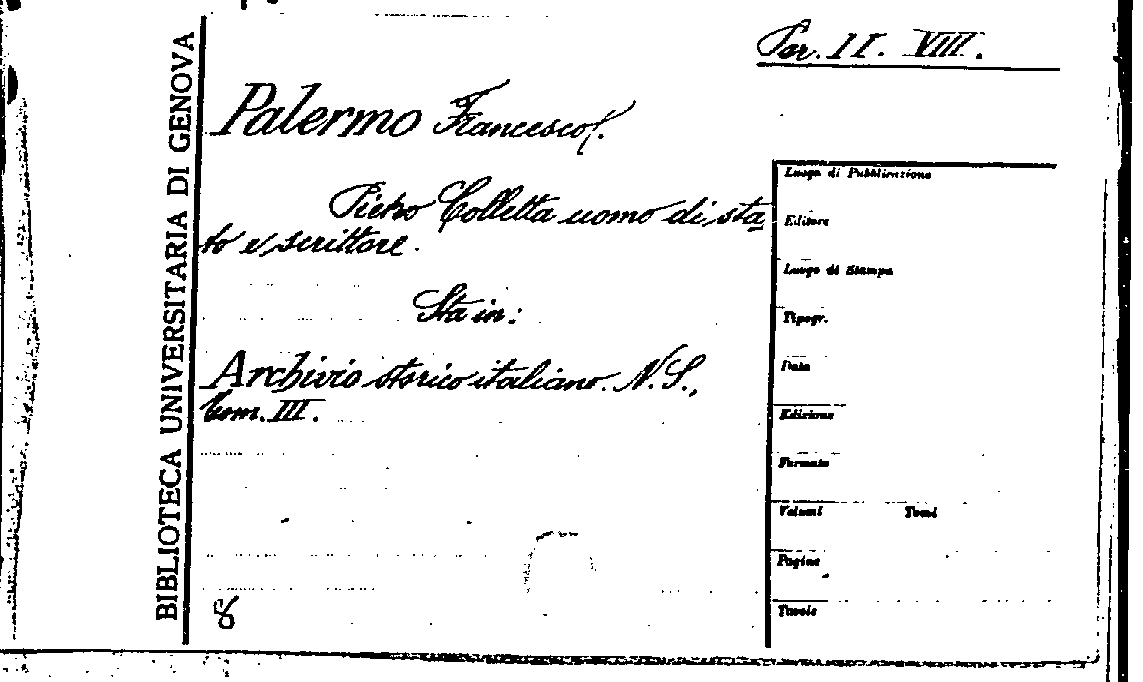 Per. II. VIII.
BIBLIOTECA UNIVERSITARIA DI GENOVA
Palermo Francesco/.
Pietro Colletta uomo di sta
to e scrittore.
Sta in:
Archivio storico italiano. N.S.,
tom. III.
8
Luogo di Pubblicazione
Editore
Luogo di Stampa
Tipogr.
Data
Edizione
Formato
Volumi Tomi
Pagine
Tavole